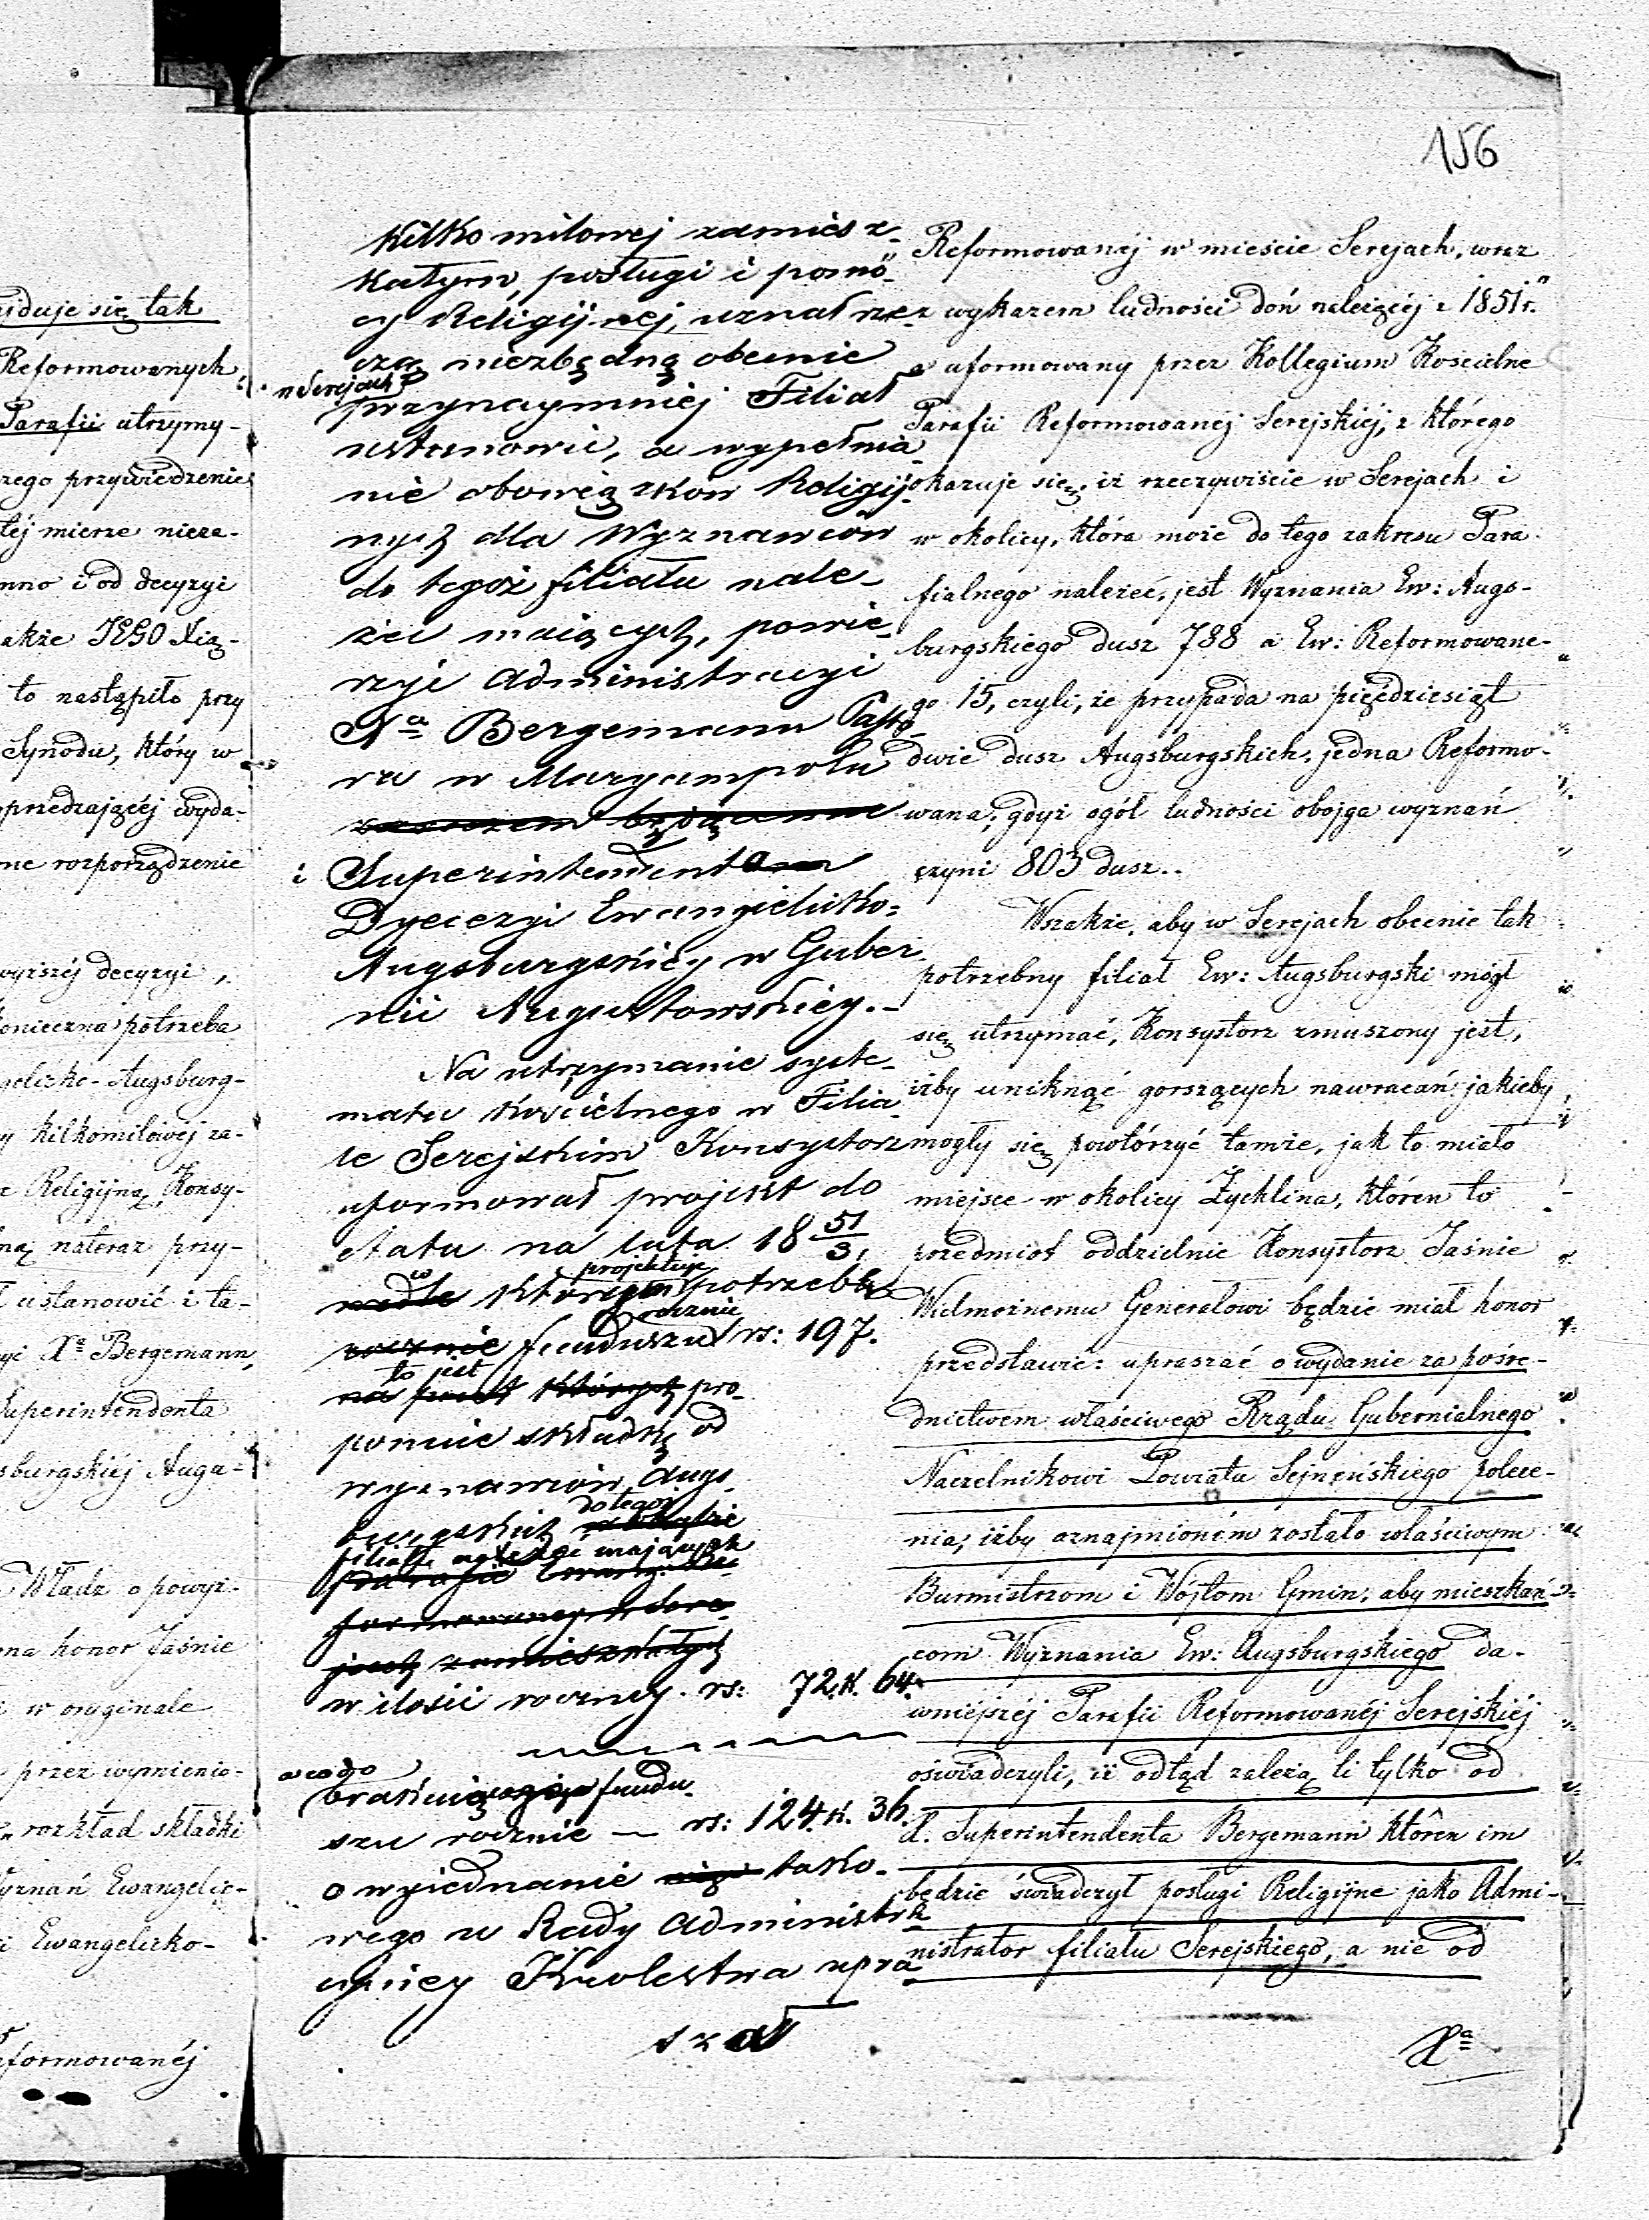 156
jduje się tak
Reformowanych
Parafii utrzymy-
rego przywiedzenie
tej mierze nieza-
nno i od decyzyi
akże JEGO Xią-
to nastąpiło przy
Synodu, który w
przedzającéj wyda-
ne rozporządzenie
wyższéj decyzyi,
onieczna potrzeba
gelicko-Augsburg-
y kilkomilowéj za-
Religijną, Konsy-
ną nateraz przy-
ustanowić i ta-
yi Xa Bergemann,
Superintendenta
sburgskiéj Augu-
Władz o powyż-
ma honor Jaśnie
w oryginale
przez wymienio-
rozkład składki
yznań Ewangelic-
i Ewangelicko-
eformowanéj
Kilko milowej zamiesz-
kałym, posługi i pomo-
cy Religijnej, uznał rze-
czą niezbędną obecnie
w Serejach
przynaymniej Filiał
ustanowić, a wypełnia-
nie obowiązków Religij-
nych dla Wyznawców
do tegoż filiału nale-
żeć maiących, powie-
rzyć Administracyi
Xa Bergemann Pasto-
ra w Maryampolu
zarazem będącemu
i Superintendenta
Dyecezyi Ewangelicko-
Augsburgskiey w Guber-
nii Augustowskiey.-
Na utrzymanie syste-
matu Kościelnego w Filia-
le Serejskim Konsystorz
uformował projekt do
etatu na lata 18 51/3,
w projektuje
wedle którego potrzeba
rocznie
rocznie funduszu rs: 197.
to jest
na których pro-
ponuie składkę od
wyznawców Augs-
do tegoż
burgskich
filiału należeć mających
parafii Ewang: Re-
formowaney w Sere-
jach zamieszkałych
w ilości roczney rs: 72. k. 64.
a co do
brakuiącego fundu-
szu rocznie — rs: 124. k. 36.
o wyiednanie tako-
wego u Rady Administra-
cyiney Królestwa upra-
szał
Reformowanéj w mieście Serejach, wraz
z wykazem ludności doń należącéj z 1851 r.
a uformowany przez Kollegium Kościelne
Parafii Reformowanéj Serejskiéj, z którego
okazuje się, iż rzeczywiście w Serejach i
w okolicy, która może do tego zakresu Para-
fialnego należeć, jest Wyznania Ew: Augs-
burgskiego dusz 788 a Ew: Reformowane-
go 15, czyli, że przypada na pięćdziesiąt
dwie dusz Augsburgskich, jedna Reformo-
wana; gdyż ogół ludności obojga wyznań
czyni 803 dusz..
Wszakże, aby w Serejach obecnie tak
potrzebny filiał Ew: Augsburgski mógł
się utrzymać, Konsystorz zmuszony jest,
iżby uniknąć gorszących nawracań jakieby
mogły się powtórzyć tamże, jak to miało
miejsce w okolicy Żychlina, któren to
przedmiot oddzielnie Konsystorz Jaśnie
Wielmożnemu Generałowi będzie miał honor
przedstawić: upraszać o wydanie za pośre-
dnictwem właściwego Rządu Gubernialnego
Naczelnikowi Powiatu Sejneńskiego polece-
nia, iżby oznajmioném zostało właściwym
Burmistrzom i Wójtom Gmin, aby mieszkań-
com Wyznania Ew: Augsburgskiego da-
wniejszéj Parafii Reformowanéj Serejskiéj
oświadczyli, iż odtąd zależą li tylko od
X. Superintendenta Bergemann któren im
będzie świadczył posługi Religijne jako Admi-
nistrator filiału Serejskiego, a nie od
Xa